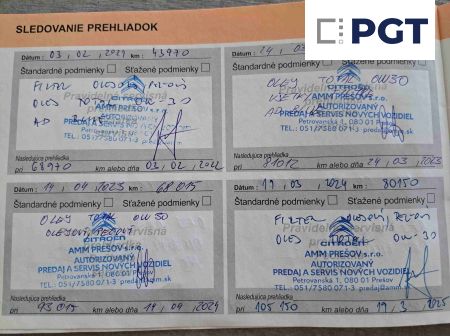 PGT
SLEDOVANIE PREHLIADOK
Dátum : 03, 02, 2021 km : 43970
Štandardné podmienky Sťažené podmienky
FILTER OLEJOVÝ
OLEJ TOTAL 0W-30
CITROËN
AMM PREŠOV s.r.o.
AUTORIZOVANÝ
PREDAJ A SERVIS NOVÝCH VOZIDIEL
Petrovanská 1, 080 01 Prešov
TEL.: 051/7588 071-3
Nasledujúca prehliadka
pri 68970 km alebo dňa 03, 02, 2022
Dátum :
Štandardné podmienky Sťažené podmienky
OLEJ TOTAL 0W30
CITROËN
AMM PREŠOV s.r.o.
AUTORIZOVANÝ
PREDAJ A SERVIS NOVÝCH VOZIDIEL
Petrovanská 1, 080 01 Prešov
TEL.: 051/7588 071-3
Nasledujúca prehliadka
pri 81012 km alebo dňa 24, 03, 2023
Dátum : 14, 09, 2023 km : 68 015
Štandardné podmienky Sťažené podmienky
OLEJ TOTAL 0W30
CITROËN
AMM PREŠOV s.r.o.
AUTORIZOVANÝ
PREDAJ A SERVIS NOVÝCH VOZIDIEL
Petrovanská 1, 080 01 Prešov
TEL.: 051/7588 071-3
Nasledujúca prehliadka
pri 93 015 km alebo dňa 14, 09, 2024
Dátum : 19, 03, 2024 km : 80150
Štandardné podmienky Sťažené podmienky
FILTER OLEJOVÝ
OLEJ TOTAL 0W-30
CITROËN
AMM PREŠOV s.r.o.
AUTORIZOVANÝ
PREDAJ A SERVIS NOVÝCH VOZIDIEL
Petrovanská 1, 080 01 Prešov
TEL.: 051/7588 071-3
Nasledujúca prehliadka
pri 105 150 km alebo dňa 19, 3, 2025